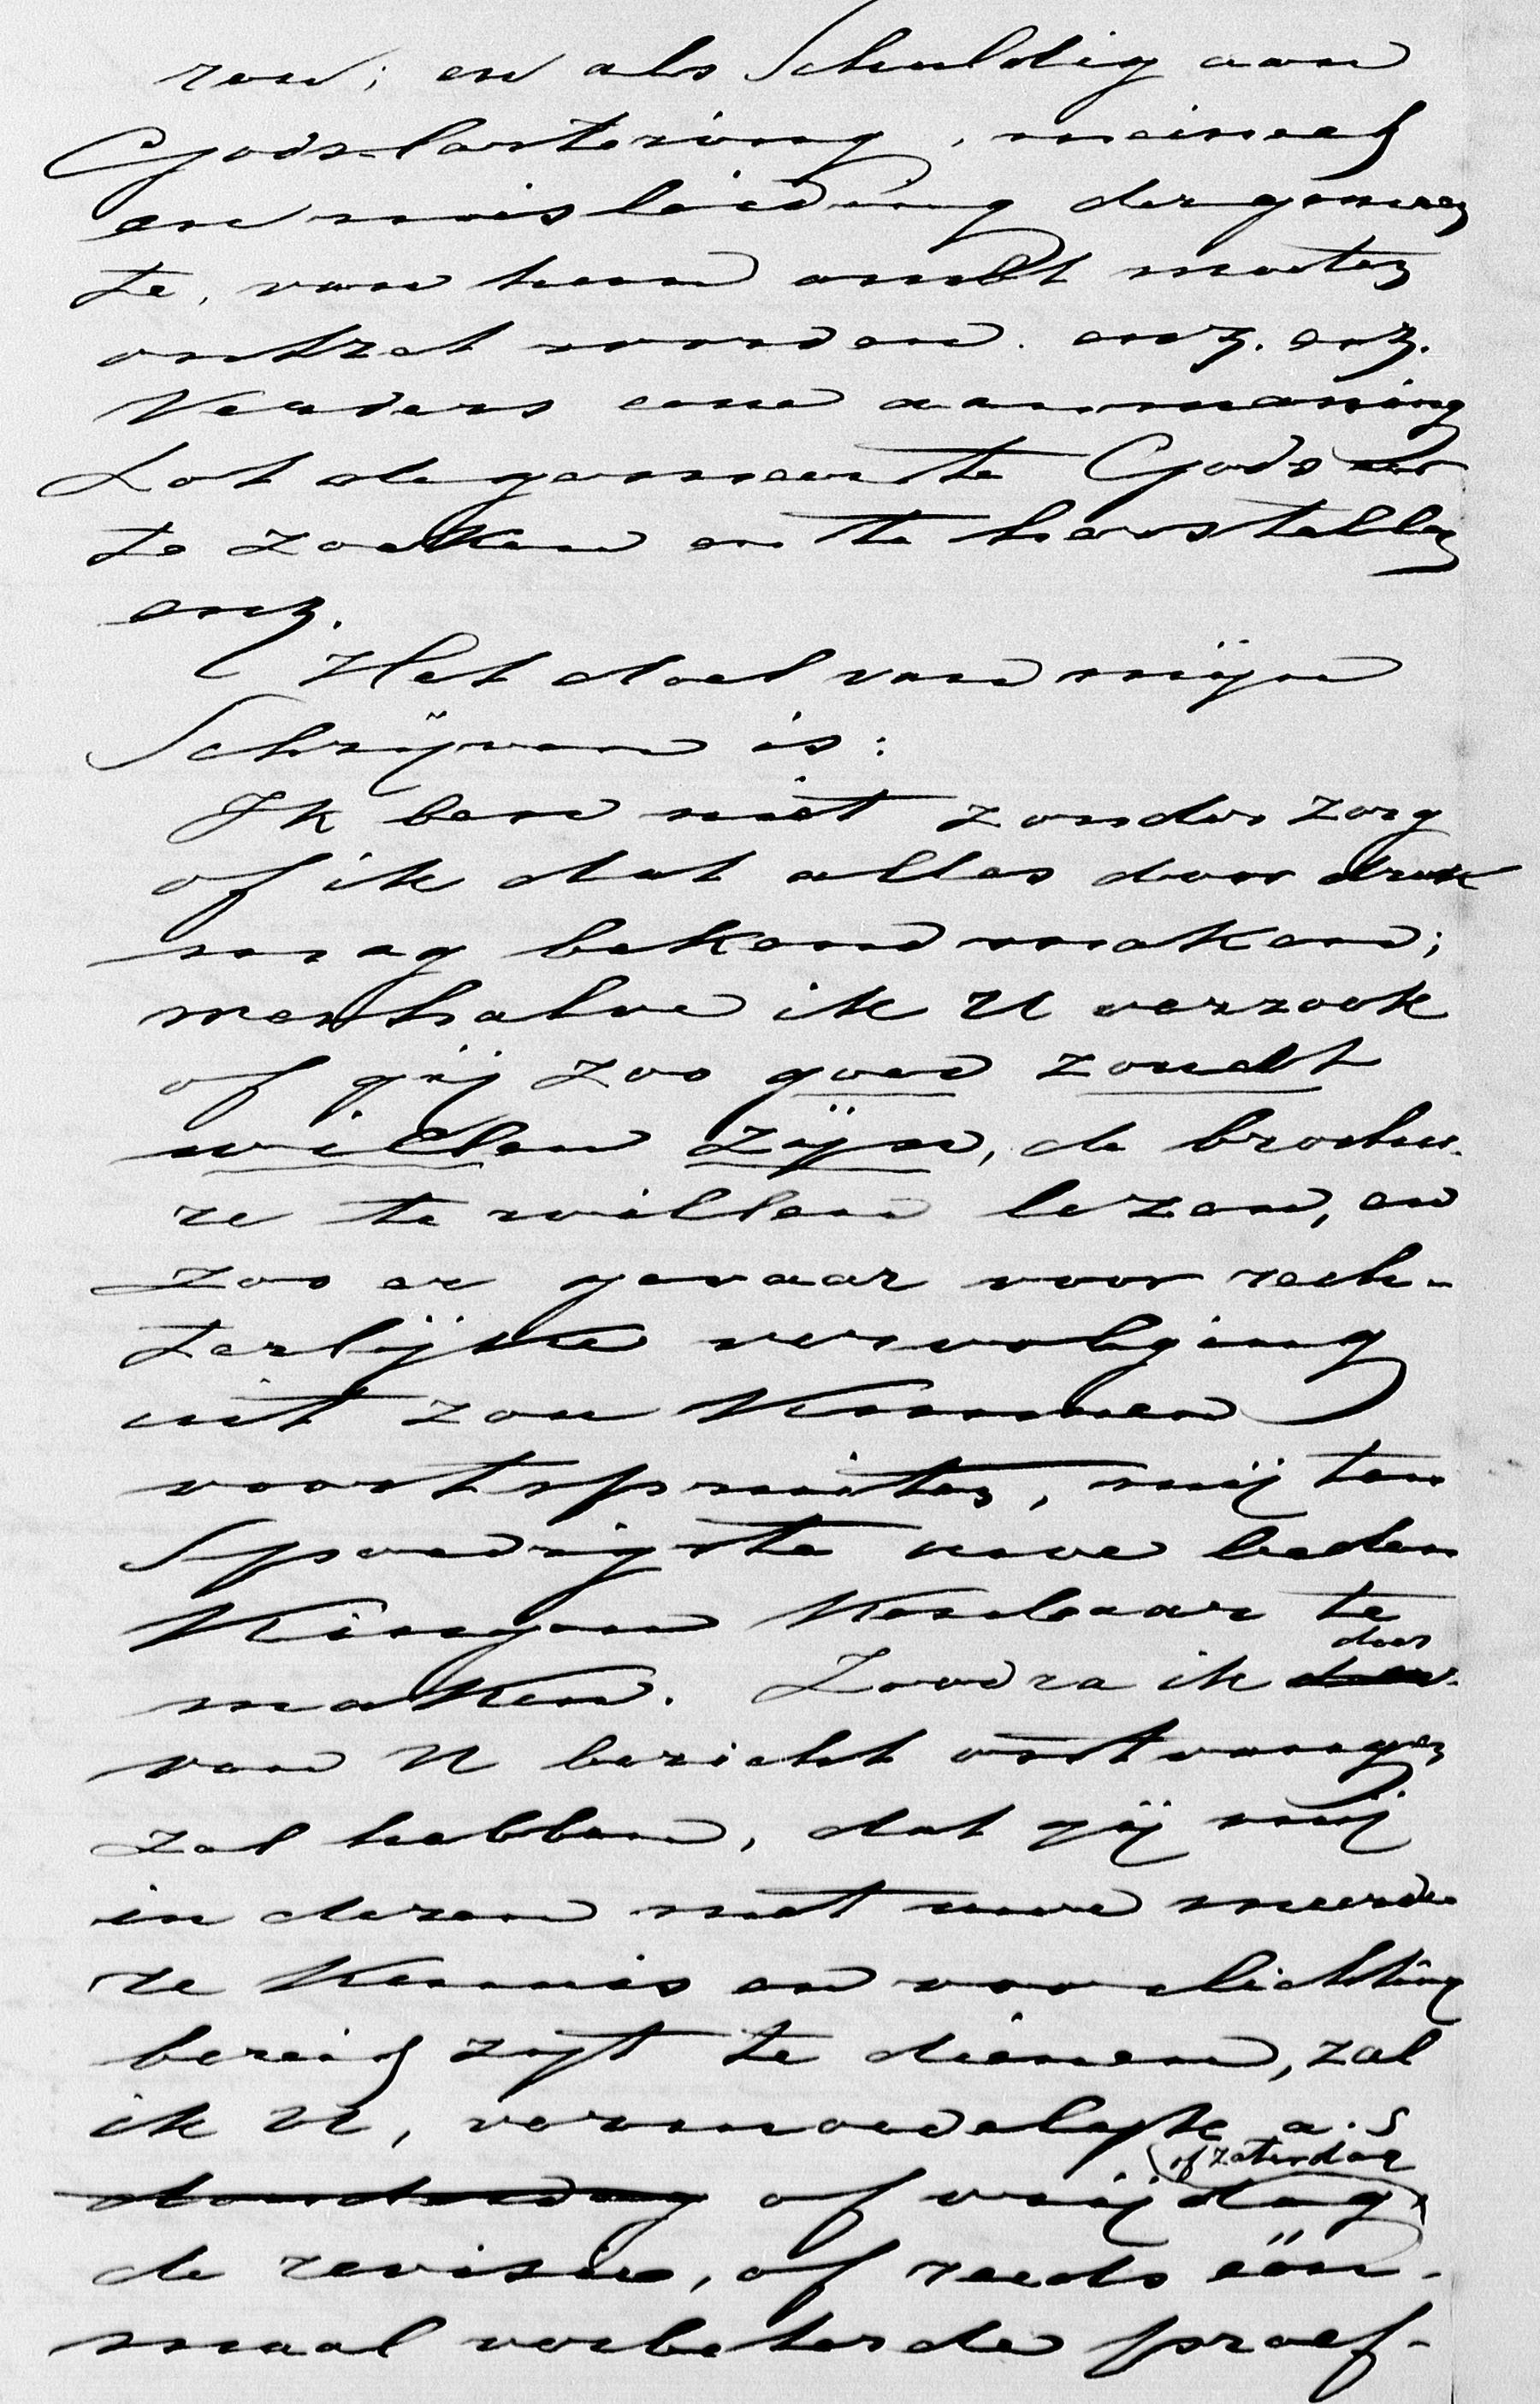 ren; en als Schuldig aan
Godslastering, meineed
en misleiding der gemeen
te, van hun ambt moeten
ontzet worden. enz. enz.
Verders eene aanmaning
tot de gemeente Gods
te zoeken en te herstellen
enz.
Het doel van mijn
Schrijven is:
Ik ben niet zonder zorg
of ik dat alles door druk
mag bekend maken;
mershalve ik U verzoek
of gij zoo goed zoudt
willen zijn, de brochu-
re te willen lezen, en
zoo er gevaar voor rech-
terlijke vervolging
uit zou kunnen
voortspruiten, mij ten
Spoedigste uwe beden
kingen kenbaar te
maken. Zoodra ik door
van U bericht ontvangen
zal hebben, dat gij mij
in dezen met uwe meerde
re kennis en voorlichting
bereid zijt te dienen, zal
ik U, vermoedelijk a.s
donderdag of vrijdag (of zaterdag)
de revisie, of reeds één-
maal verbeterde proef-